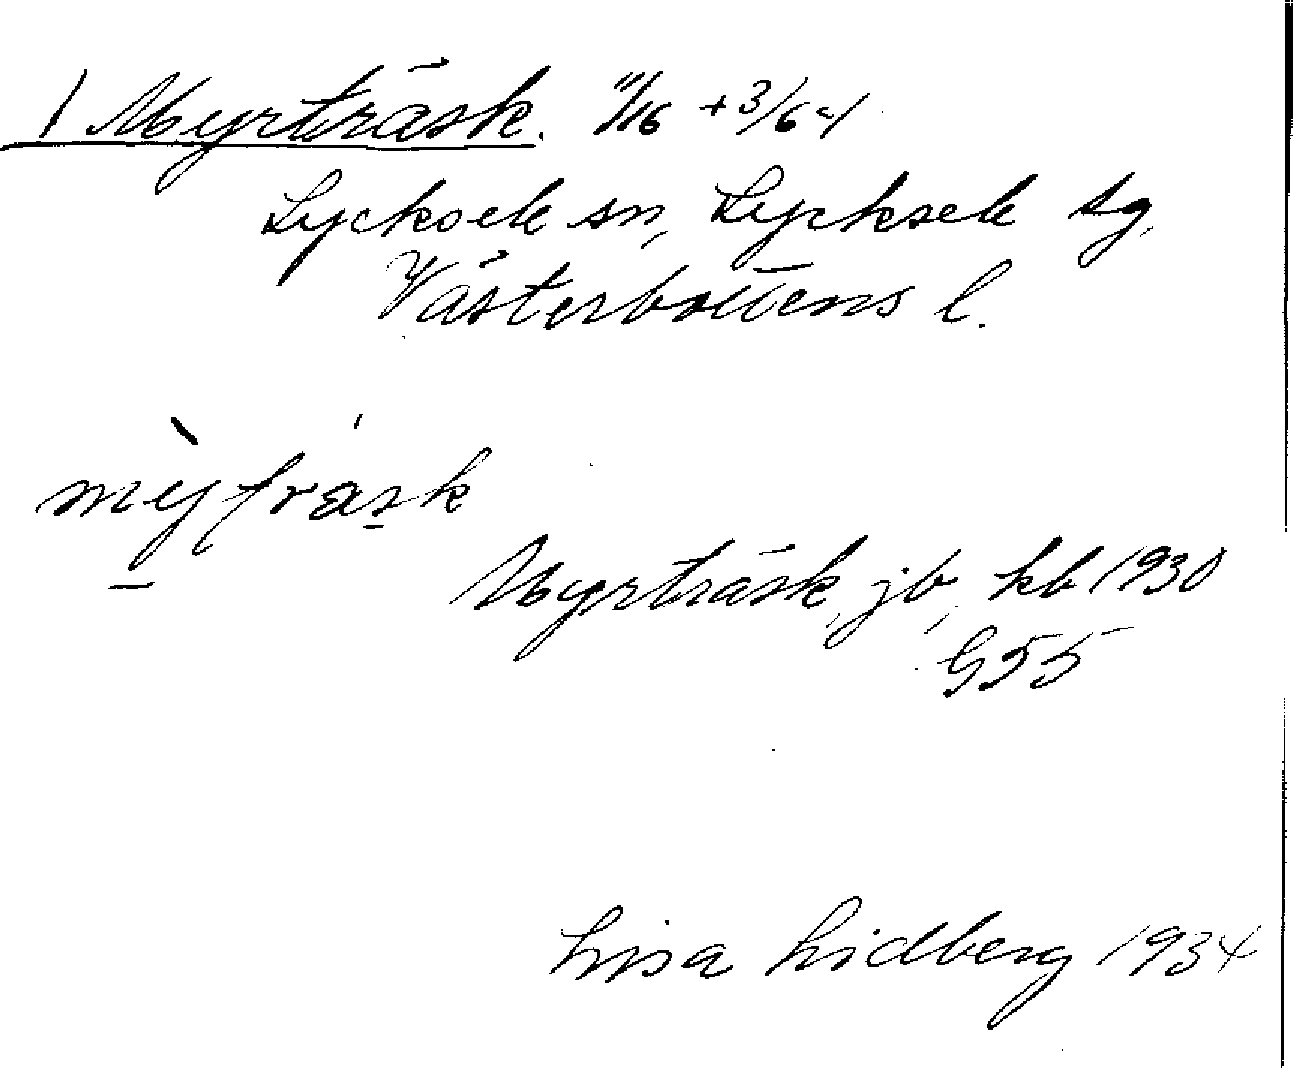 1 Myrträsk. 11/16 + 3/64
Lycksele sn, Lycksele tg,
Västerbottens l.
mỳtrásk
Myrträsk, jb, kb 1930
G55
Lisa Lidberg 1934